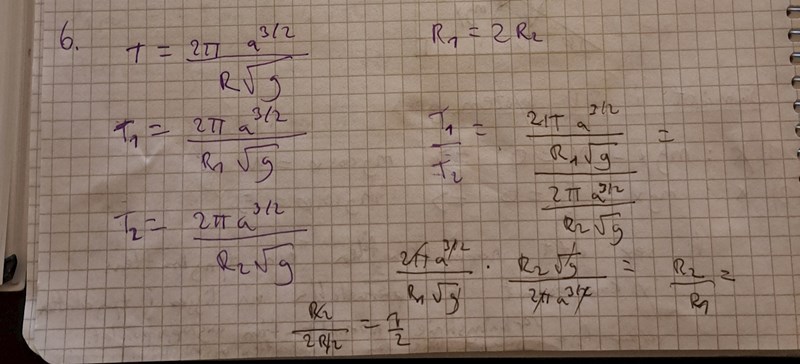 6. T = 2π a^3/2 / R√g
R1 = 2R2
T1 = 2π a^3/2 / R1 √g
T2 = 2π a^3/2 / R2 √g
T1 / T2 = (2π a^3/2 / R1√g) / (2π a^3/2 / R2√g) =
2π a^3/2 / R1√g · R2√g / 2π a^3/2 = R2 / R1 =
R2 / 2R2 = 1/2